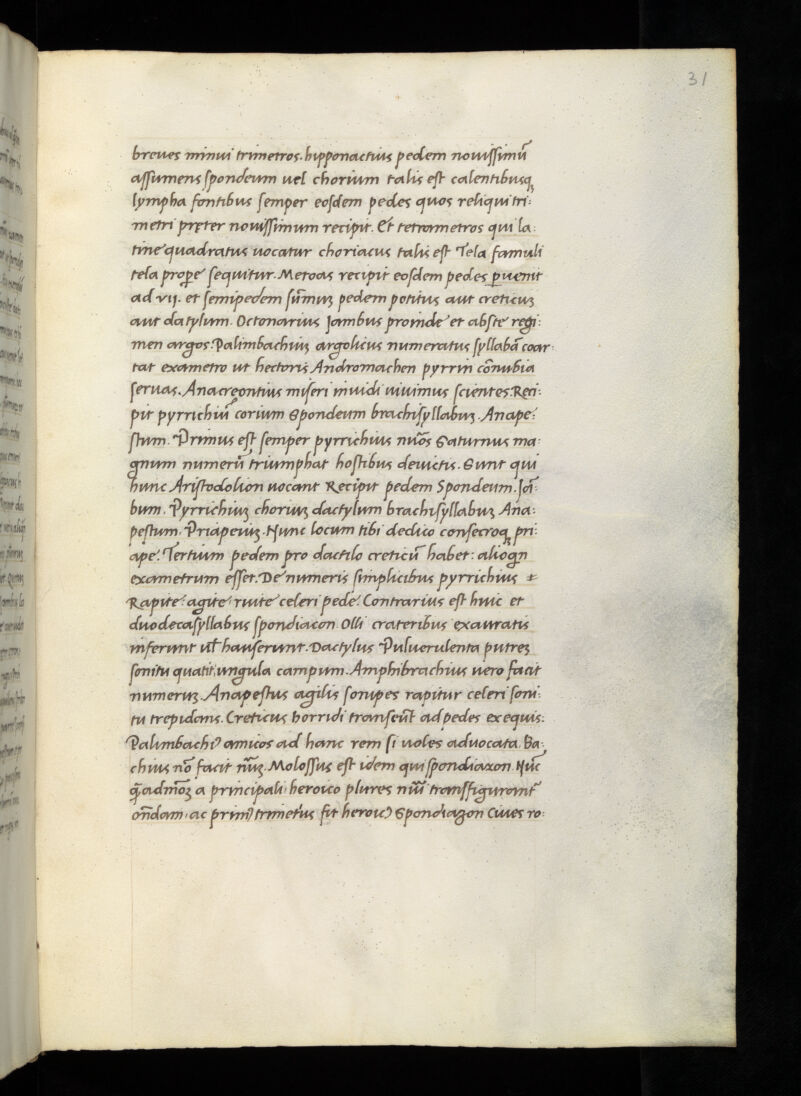 31
breues minui trimetros. hipponactius pedem nouissimũ
assumens spondeum uel chorium talis est calentibusq;
lympha fontibus semper eosdem pedes quos reliqui tri:
metri pręter nouissimum recipit. Et tetrametros qui la:
tine quadratus uocatur choriacus talis est Tela famuli
tela propere sequitur. Metoas recipit eosdem pedes ꝑuenit
ad vij. et semipedem sũmuꝫ pedem potitus aut creticuꝫ
aut datylum. Octonarius Iambus proinde et abste regi:
men argos. Palimbachius argolicus numeratus syllabã coar:
tat exametro ut hectoris Andromachen pyrrin cõnubia
seruas. Anacreontius miseri inuidi uiuimus scientes. Reci:
pit pyrrichiũ corium Spondeum brachisyllabuꝫ. Anape:
stum. Primus est semper pyrrichius nũos Saturnus ma:
gnum numerũ triumphat hostibus deuictis. Sunt qui
hunc Aristodolion uocant Recipit pedem Spondeum. Iã
bum. Pyrrichiuꝫ choriuꝫ dactylum brachisyllabuꝫ Ana:
pestum. Priapeiuꝫ. Nunc locum tibi dedico consecroq; pri:
ape. Tertium pedem pro dactilo creticũ habet: alioqn
exametrum esset. De numeris simplicibus pyrrichius
Rapite: agite: ruite celeri pede. Contrarius est huic et
duodecasyllabus spondiacon. Olli crateribus exauratis
inferunt uł hauserunt. Dactylus Puluerulenta putreꝫ
sonitu quatit ungula campum. Amphibrachius uero facit
numeruꝫ. Anapestus agilis sonipes rapitur celeri soni:
tu trepidans. Creticus horridi transeũt ad pedes ex equis:
Palimbachiꝰ amicos ad hanc rem si uoles aduocata. Ba:
chius nõ facit nũꝫ. Molossus est idem qui spondiaxon. Nũc
q̃admõꝫ a principali heroico plures nũi transfigurant̃
oñdam ac primꝰ trimetꝰus fit heroicꝰ Spondiazon Ciues ro: